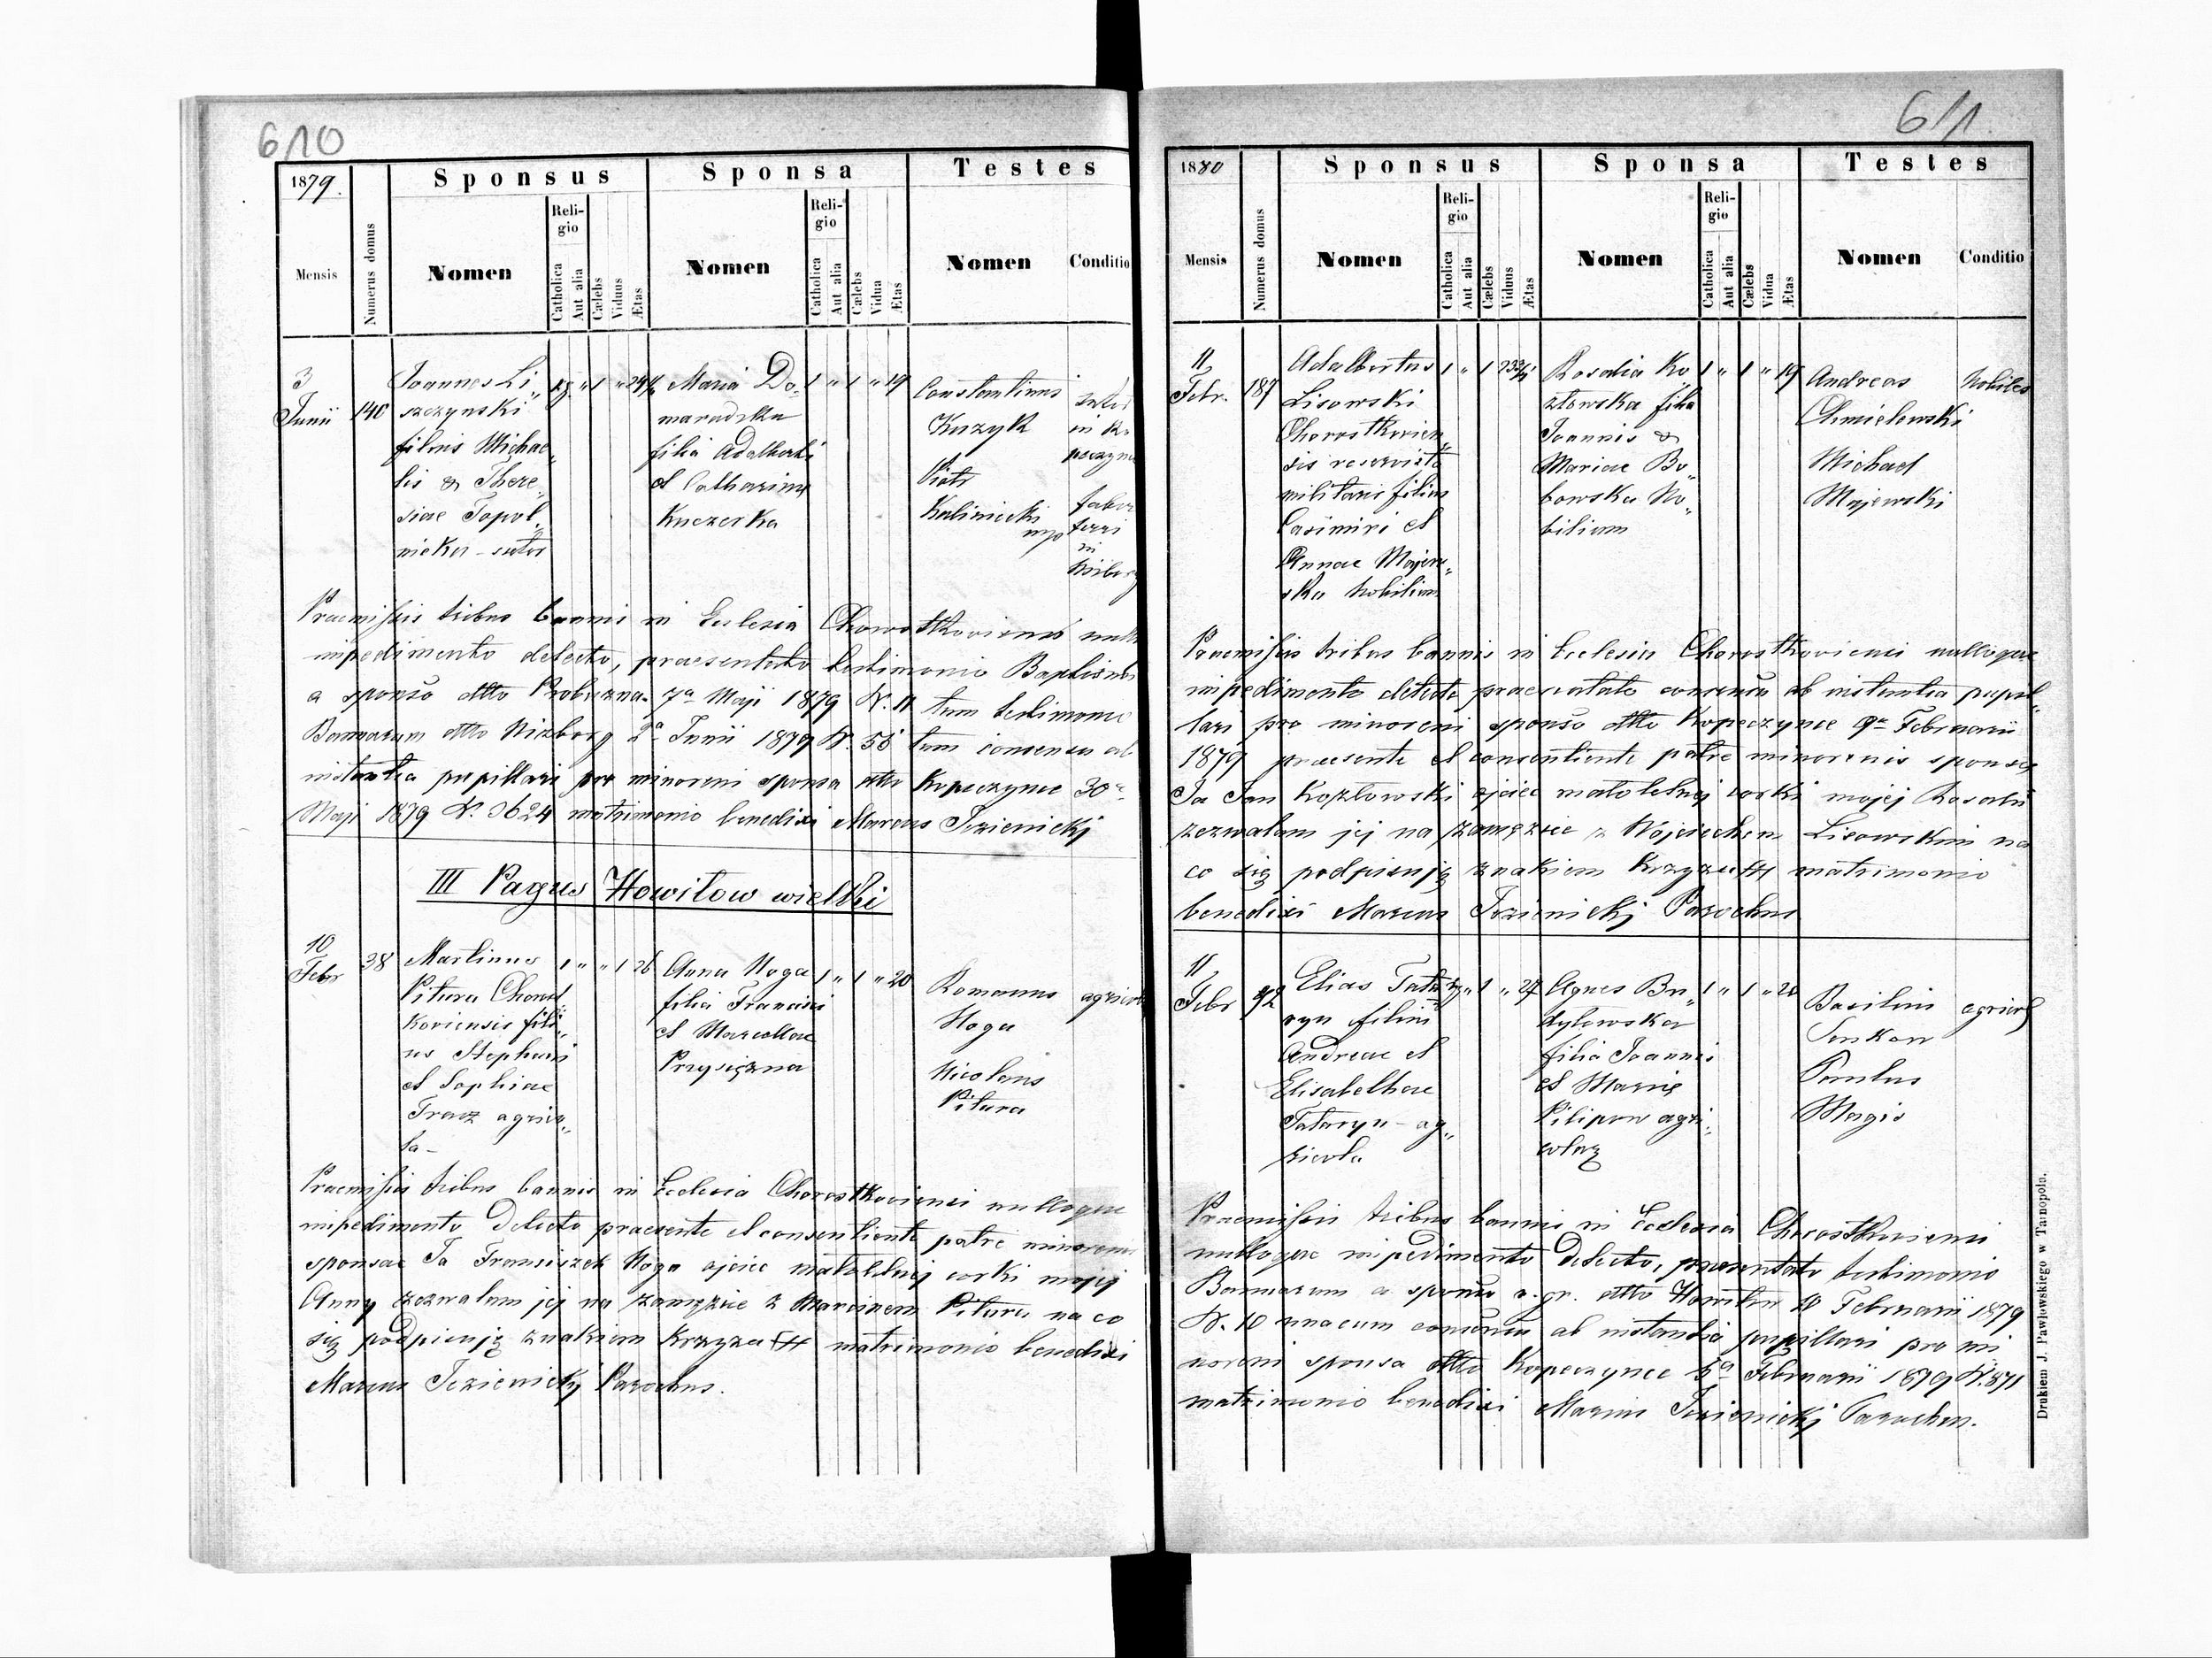 610
1879.
Mensis
Numerus domus
Sponsus
Nomen
Religio
Catholica
Aut alia
Cælebs
Viduus
Ætas
Sponsa
Nomen
Religio
Catholica
Aut alia
Cælebs
Vidua
Ætas
Testes
Nomen
Conditio
3
Junii
140
Joannes Li„
szczynski
filius Michae„
lis & There„
siae Topol„
nicka - sutor
rg. „ 1 „ 24½
Maria Do„
maradzka
filia Adalberti
et Catharinae
Kuczerka
1 „ 1 „ 19
Constantinus
Kuzyk
Piotr
Kaliniecki
mp
sutor
in Ko
peczyn
faber
ferri
in
Nizborg
Praemissis tribus bannis in Eclesia Chorostkoviensi nullo
impedimento detecto, praesentato testimonio Baptismi
a sponso dtto Probuzna 7a Maji 1879 N. 11 tum testimonio
Bannorum dtto Nizborg 2a Junii 1879 N. 58 tum consensu ab
instantia pupillari pro minoreni sponsa dtto Kopeczynce 30a
Maji 1879 N. 3624 matrimonio benedixi Marcus Jezienickj
III Pagus Howilow wielki
10
Febr
38
Martinus
Pitura Chorost„
koviensis fili„
us Stephani
et Sophiae
Tracz agrico„
la -
1 „ „ 1 26
Anna Noga
filia Francisci
et Marcellae
Przysiężna
1 „ 1 „ 20
Romanus
Noga
Nicolaus
Pitura
agricol
Praemissis tribus bannis in Ecclesia Chorostkoviensi nulloque
impedimento detecto praesente et consentiente patre minorenis
sponsae Ja Franciszek Noga ojciec małoletniej corki mojej
Anny zezwalam jej na zamęzcie z Marcinem Pitura na co
się podpisuję znakiem Krzyza ++ matrimonio benedixi
Marcus Jezienickj Parochus.
611
1880
Mensis
Numerus domus
Sponsus
Nomen
Religio
Catholica
Aut alia
Cælebs
Viduus
Ætas
Sponsa
Nomen
Religio
Catholica
Aut alia
Cælebs
Vidua
Ætas
Testes
Nomen
Conditio
11
Febr.
187
Adalbertus
Lisowski
Chorostkovien„
sis reservista
militaris filius
Casimiri et
Annae Majew„
ska Nobilium
1 „ 1 23¾
Rosalia Ko„
złowska filia
Joannis &
Mariae Bu„
kowska No„
bilium
1 „ 1 „ 19
Andreas
Chmielowski
Michael
Majewski
Nobiles
Praemissis tribus bannis in Ecclesia Chorostkoviensi nulloque
impedimento detecto praesentato consensu ab instantia pupil„
lari pro minoreni sponso dtto Kopeczynce 9a Februarii
1879 praesente et consentiente patre minorenis sponsae
Ja Jan Kozłowski ojciec małoletniej corki mojej Rosalii
zezwalam jej na zamęzcie z Wojciechem Lisowskim na
co się podpisuję znakiem krzyza ++ matrimonio
benedixi Marcus Jezienickj Parochus
11
Febr
92
Elias Tata„
ryn filius
Andreae et
Elisabethae
Tataryn - ag„
ricola
rg „ 1 „ 27
Agnes Bu„
dylowska
filia Joannis
et Mariae
Pilipow agri„
colarz
1 „ 1 „ 20
Basilius
Senkow
Paulus
Magis
agricol
Praemissis tribus bannis in Ecclesia Chorostkoviensi
nulloque impedimento detecto, praesentato testimonio
Bannorum a sponso r. gr. dtto Howilow 10 Februarii 1879
N. 10 una cum consensu ab instantia pupillari pro mi
noreni sponsa dtto Kopeczynce 5a Februarii 1879 N. 871
matrimonio benedixi Marcus Jezienickj Parochus.
Drukiem J. Pawłowskiego w Tarnopolu.